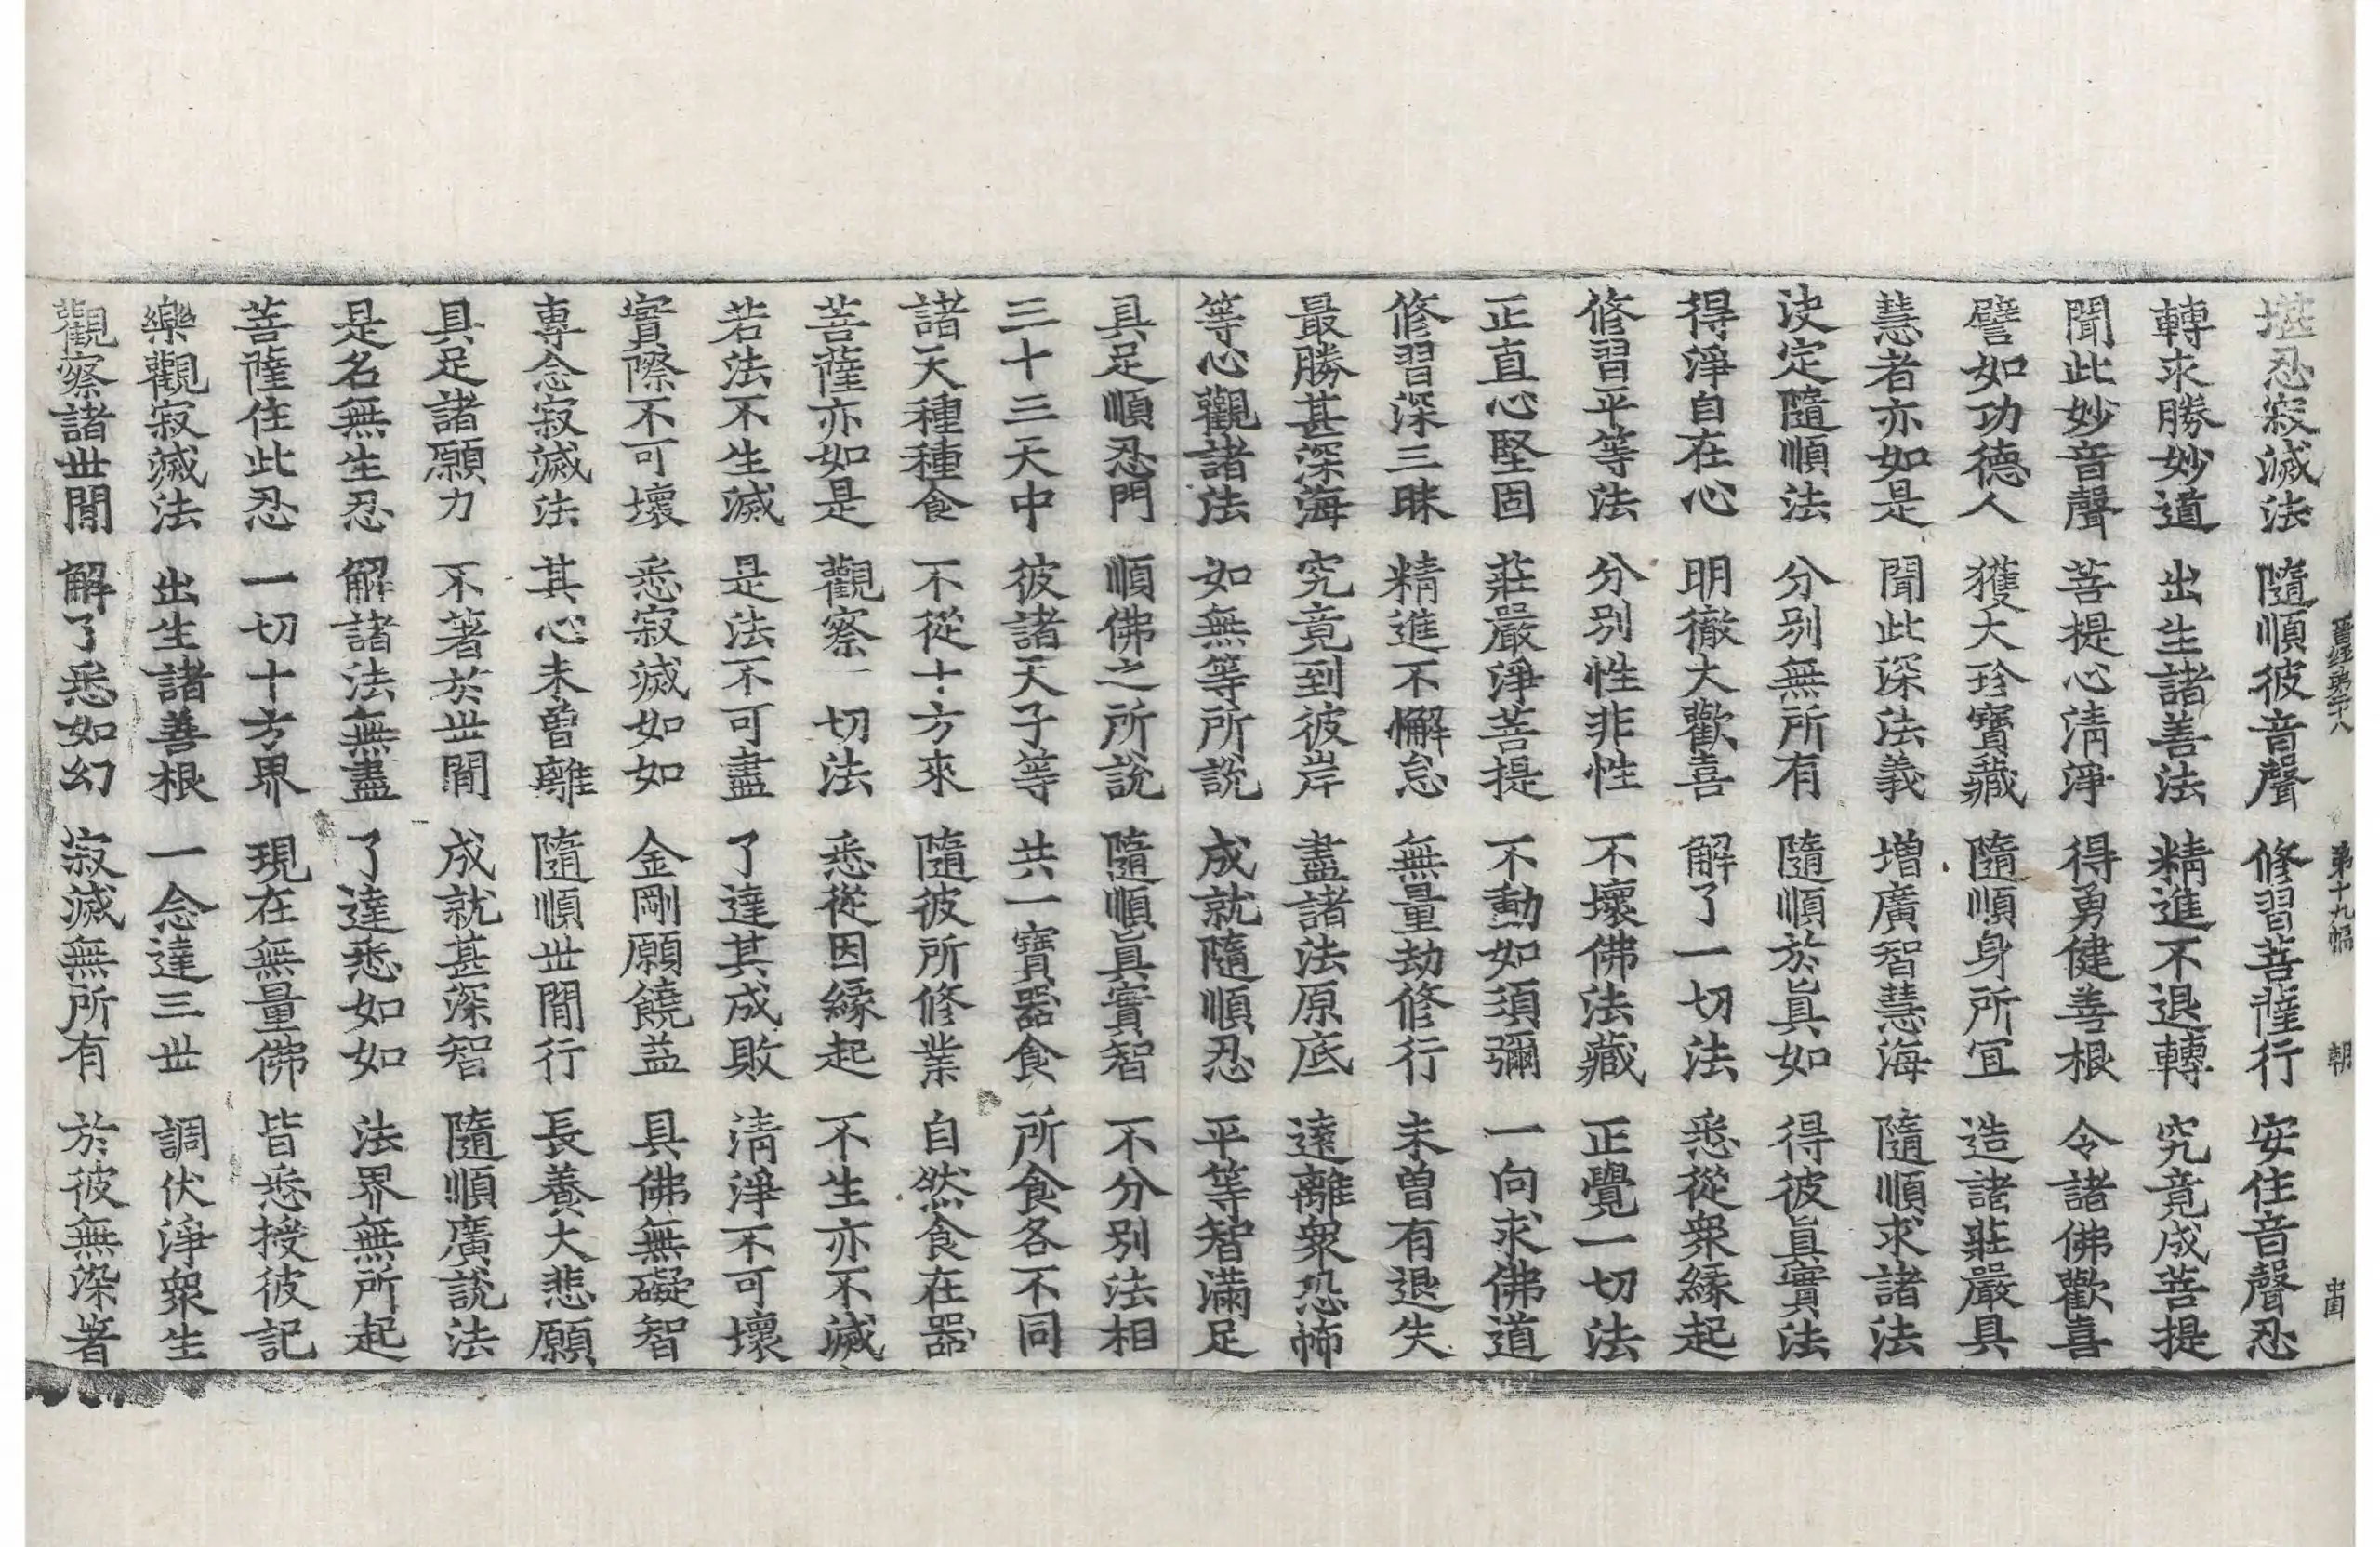 晋経第二十八 第十九幅 朝
堪忍寂滅法 隨順彼音聲 修習菩薩行 安住音聲忍
轉求勝妙道 出生諸善法 精進不退轉 究竟成菩提
聞此妙音聲 菩提心淸淨 得勇健善根 令諸佛歡喜
譬如功德人 獲大珍寶藏 隨順身所冝 造諸莊嚴具
慧者亦如是 聞此深法義 增廣智慧海 隨順求諸法
決定隨順法 分別無所有 隨順於眞如 得彼眞實法
得淨自在心 明徹大歡喜 解了一切法 悉從衆緣起
修習平等法 分別性非性 不壞佛法藏 正覺一切法
正直心堅固 莊嚴淨菩提 不動如須彌 一向求佛道
修習深三昧 精進不懈怠 無量劫修行 未曾有退失
最勝甚深海 究竟到彼岸 盡諸法原底 遠離衆恐怖
等心觀諸法 如無等所說 成就隨順忍 平等智滿足
具足順忍門 順佛之所說 隨順眞實智 不分別法相
三十三天中 彼諸天子等 共一寶器食 所食各不同
諸天種種食 不從十方來 隨彼所修業 自然食在器
菩薩亦如是 觀察一切法 悉從因緣起 不生亦不滅
若法不生滅 是法不可盡 了達其成敗 淸淨不可壞
實際不可壞 悉寂滅如如 金剛願饒益 具佛無礙智
專念寂滅法 其心未曾離 隨順世閒行 長養大悲願
具足諸願力 不著於世閒 成就甚深智 隨順廣說法
是名無生忍 解諸法無盡 了達悉如如 法界無所起
菩薩住此忍 一切十方界 現在無量佛 皆悉授彼記
樂觀寂滅法 出生諸善根 一念達三世 調伏淨衆生
觀察諸世閒 解了悉如幻 寂滅無所有 於彼無染著